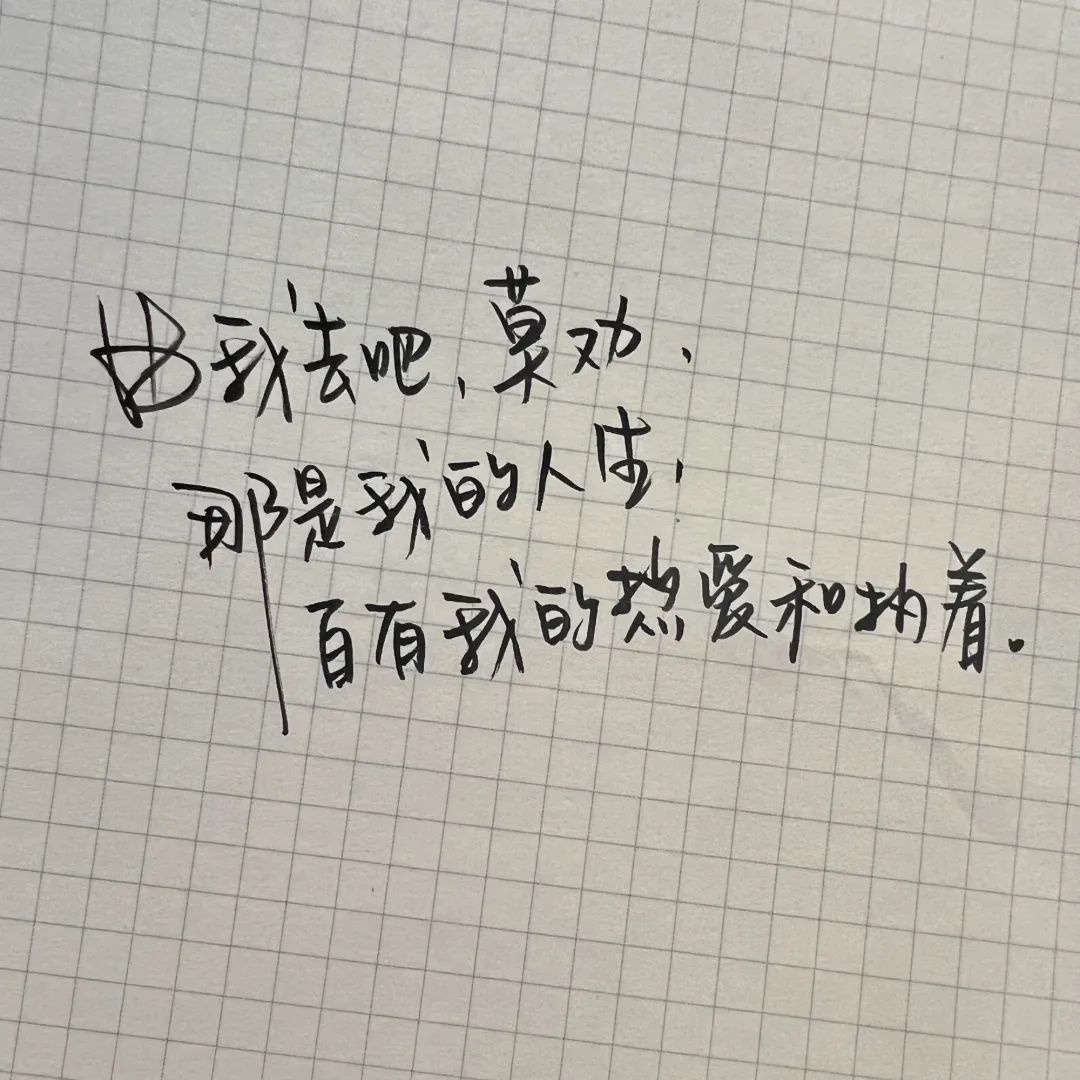 由我去吧,莫劝,
那是我的人生,
自有我的热爱和执着.